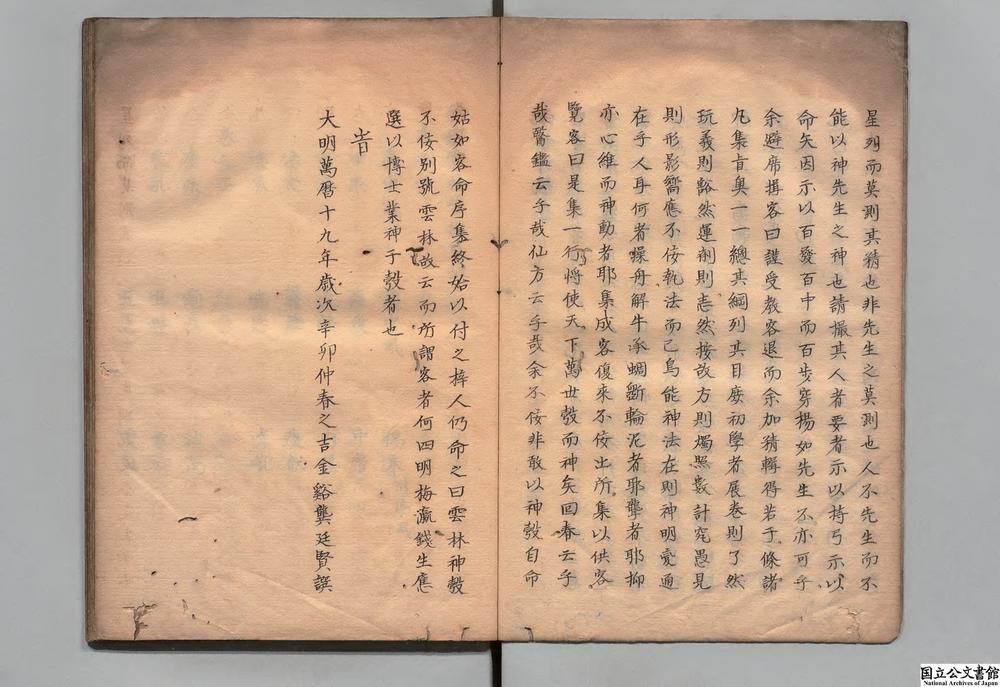 星列而莫測其精也非先生之莫測也人不先生而不
能以神先生之神也請撮其人者要者示以持弓示以
命矢因示以百發百中而百步穿楊如先生不亦可乎
余避席揖客曰謹受教客退而余加精輯得若于條諸
凡集肓奥一一總其綱列其目庶初學者展卷則了然
玩義則豁然運劑則恚然按故方則燭照數計究愚見
則形影嚮應不佞執法而已烏能神法在則神明變通
在乎人耳何者操舟解牛承蜩斵輪泥者耶鏧者耶抑
亦心維而神動者耶集成客復來不佞出所集以供客
覽客曰是集一行將使天下萬世彀而神矣回春云乎
哉醫鑑云乎哉仙方云乎哉余不佞非敢以神彀自命
姑如客命序集終始以付之梓人仍命之曰雲林神彀
不佞別號雲林故云而所謂客者何四明梅瀛錢生應
選以博士業神于彀者也
旹
大明萬曆十九年歲次辛卯仲春之吉金谿龔廷賢譔
国立公文書館
National Archives of Japan